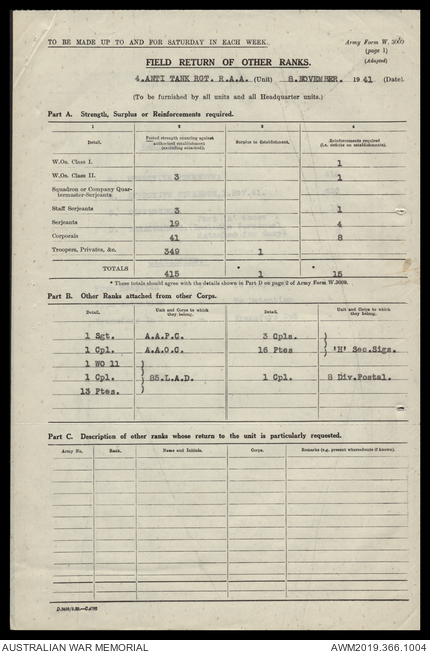 TO BE MADE UP TO AND FOR SATURDAY IN EACH WEEK.
Army Form W. 3009
(page 1)
(Adapted)
FIELD RETURN OF OTHER RANKS.
4.ANTI TANK RGT. R.A.A. (Unit) 8.NOVEMBER. 1941 (Date).
(To be furnished by all units and all Headquarter units.)
Part A. Strength, Surplus or Reinforcements required.
1 2 3 4
Detail. Posted strength counting against authorized establishment (excluding attached). Surplus to Establishment. Reinforcements required (i.e. deficits on establishments).
W.Os. Class I. 1
W.Os. Class II. 3 1
Squadron or Company Quar-
termaster-Serjeants
Staff Serjeants 3 1
Serjeants 19 4
Corporals 41 8
Troopers, Privates, &c. 349 1
TOTALS 415 * 1 * 15
* These totals should agree with the details shown in Part D on page 2 of Army Form W.3009.
Part B. Other Ranks attached from other Corps.
Detail. Unit and Corps to which they belong. Detail. Unit and Corps to which they belong.
1 Sgt. A.A.P.C. 3 Cpls. }
1 Cpl. A.A.O.C. 16 Ptes } 'H' Sec.Sigs.
1 WO 11 }
1 Cpl. } 85.L.A.D. 1 Cpl. 8 Div.Postal.
13 Ptes. }
Part C. Description of other ranks whose return to the unit is particularly requested.
Army No. Rank. Name and Initials. Corps. Remarks (e.g. present whereabouts if known).
AUSTRALIAN WAR MEMORIAL AWM2019.366.1004